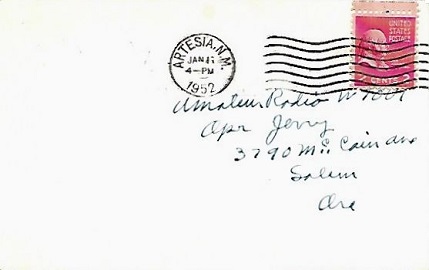 ARTESIA, N.M.
JAN
4-PM
1952
UNITED
STATES
POSTAGE
CENTS
Amateur Radio
Opr Jerry
3790 Mc Cain Ave
Salem
Ore